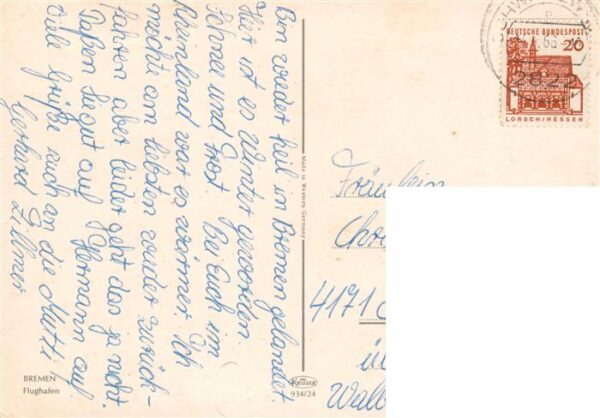 Bin wieder heil in Bremen gelandet
Hier ist es Winter geworden
Schnee und Frost. Bei Euch im
Rheinland war es wärmer. Ich
möchte am liebsten wieder zurück-
fahren aber leider geht das ja nicht.
Paßen Sie gut auf Hermann auf
Viele Grüße auch an die Mutti!
Gerhard Zillmer
BREMEN
Flughafen
Made in Western Germany
Krüger
934/24
DEUTSCHE BUNDESPOST
20
LORSCH/HESSEN
2822
Fräulein
Chri
4171
ü
Wal